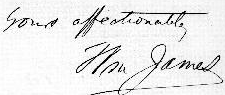 Yours affectionately,
Wm James